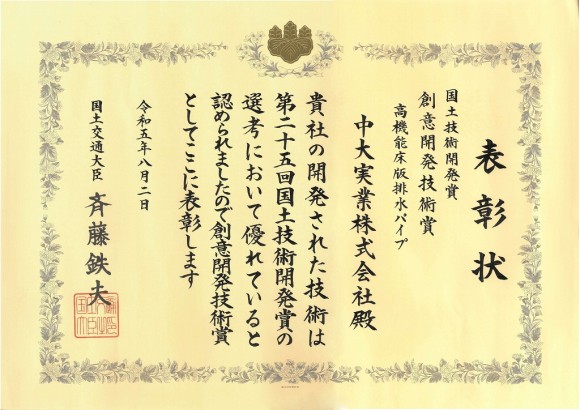 表彰状
国土技術開発賞
創意開発技術賞
高機能床版排水パイプ
中大実業株式会社殿
貴社の開発された技術は
第二十五回国土技術開発賞の
選考において優れていると
認められましたので創意開発技術賞
としてここに表彰します
令和五年八月二日
国土交通大臣 斉藤鉄夫